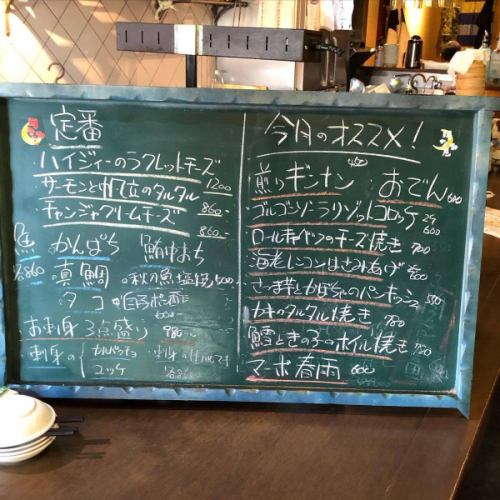 定番
ハイジィーのラクレットチーズ
サーモンと帆立のタルタル 1200
チャンジャクリームチーズ 860-
魚 かんぱち 鮪中おち
各860 真鯛 ・秋の魚塩焼
タコ
お刺身3点盛り 980-
・刺身の カルパッチョ
ユッケ
今月のオススメ!
煎りギンナン 400
おでん 600
ゴルゴンゾーラリゾットコロッケ
ロールキャベツのチーズ焼き 700
海老レンコンはさみあげ
さつま芋とかぼちゃのパンキッシュ 550
カキのタルタル焼き 780
鱈ときの子のホイル焼き 780
マーボ春雨 600